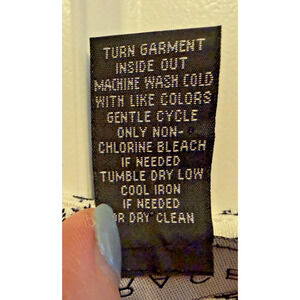 TURN GARMENT
INSIDE OUT
MACHINE WASH COLD
WITH LIKE COLORS
GENTLE CYCLE
ONLY NON-
CHLORINE BLEACH
IF NEEDED
TUMBLE DRY LOW
COOL IRON
IF NEEDED
OR DRY CLEAN